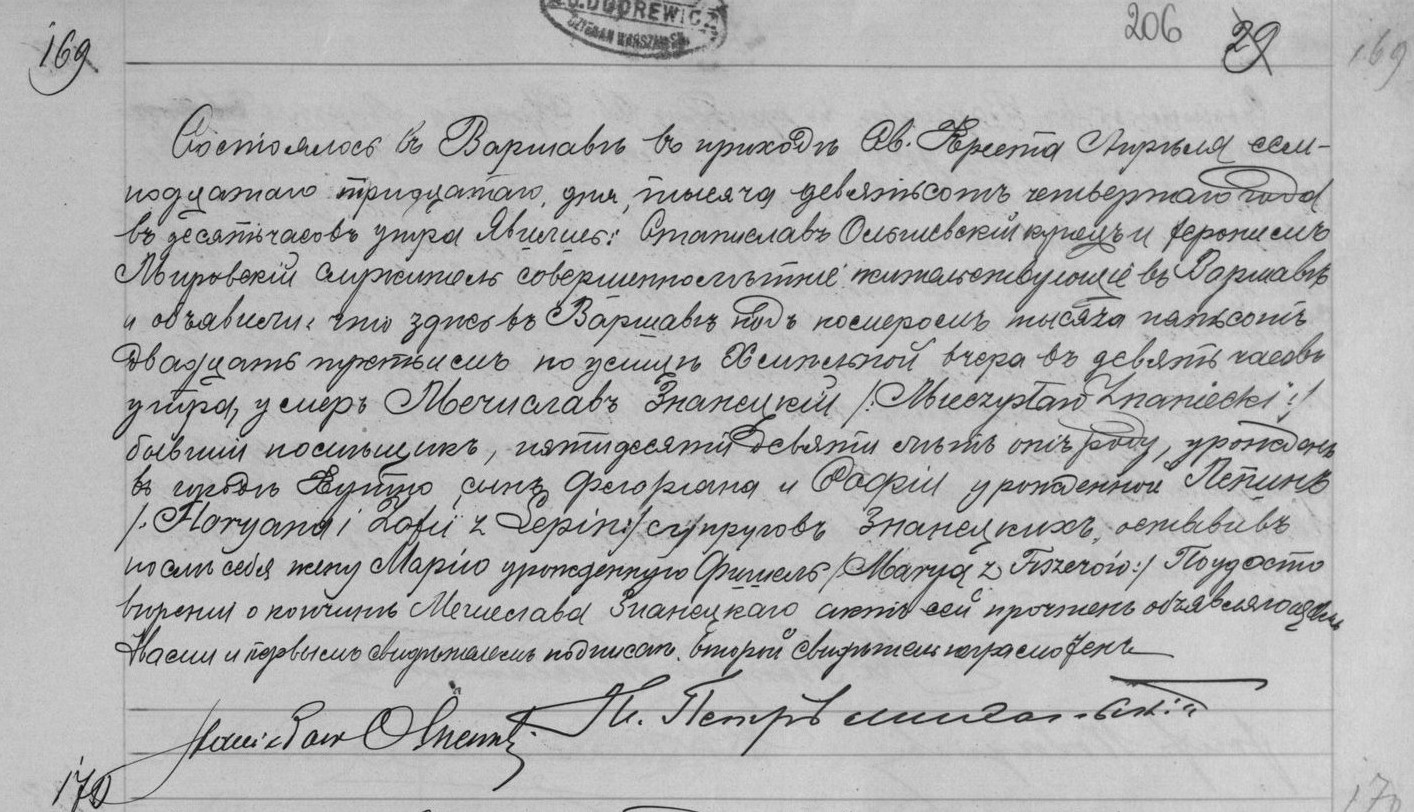 169
206
29
169
Состоялось въ Варшавѣ въ приходѣ Св. Креста Апрѣля сем-
надцатаго тридцатаго, дня, тысяча девятьсотъ четвертаго года
въ десять часовъ утра Явились: Станиславъ Ольшевскій купецъ и Іеронимъ
Мировскій служитель совершеннолѣтніе жительствующіе въ Варшавѣ
и объявили, что здѣсь въ Варшавѣ подъ номеромъ тысяча пятьсотъ
двадцать третьимъ по улицѣ Хмѣльной вчера въ девять часовъ
утра, умеръ Мечиславъ Знанецкій /:Mieczysław Znaniecki:/
бывшій носильщикъ, пятидесяти девяти лѣтъ отъ роду, урожденъ
въ городѣ Кутно сынъ Флоріана и Софіи урожденной Лепинъ
/:Floryana i Zofii z Lepin:/ супруговъ Знанецкихъ, оставивъ
послѣ себя жену Марію урожденную Фишеръ /Marya z Fiszerów:/ По удосто
вѣреніи о кончинѣ Мечислава Знанецкаго актъ сей прочтенъ объявляющимъ
Нами и первымъ свидѣтелемъ подписанъ. второй свидѣтель неграмотенъ
170
170